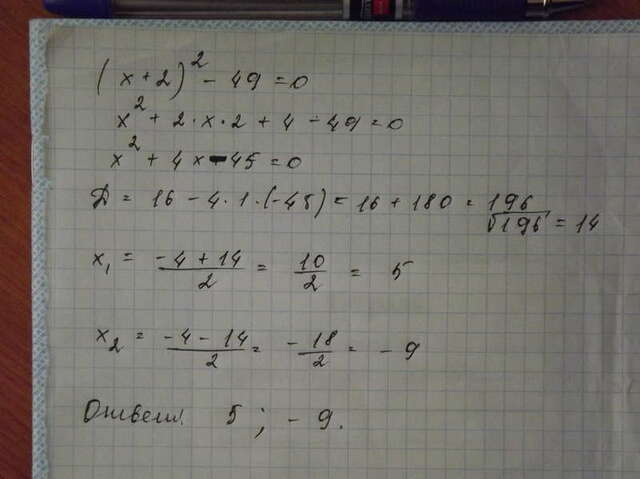 (x+2)² - 49 = 0
x² + 2·x·2 + 4 - 49 = 0
x² + 4x - 45 = 0
D = 16 - 4·1·(-45) = 16 + 180 = 196
√196 = 14
x₁ = (-4+14)/2 = 10/2 = 5
x₂ = (-4-14)/2 = -18/2 = -9
Ответ: 5; -9.